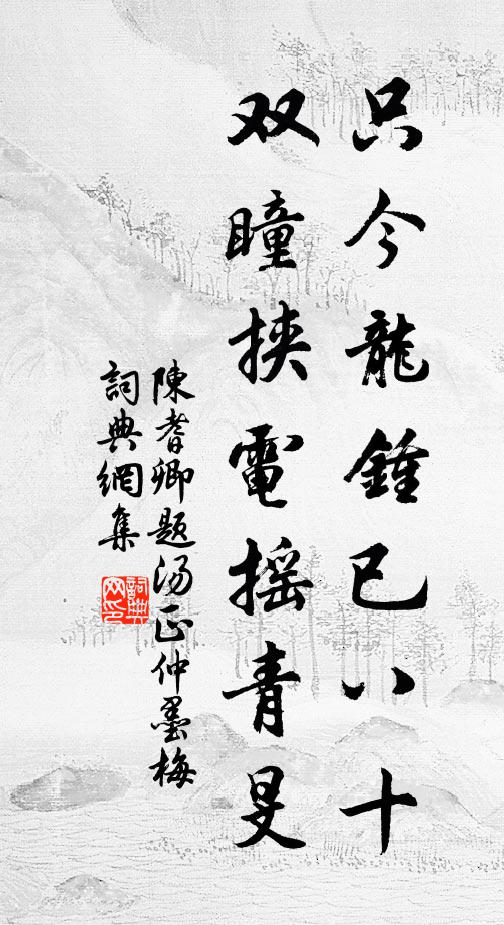 只今龍鍾已八十
双瞳挾電摇青旻
陳耆卿題汤正仲墨梅
詞典網集
詞典